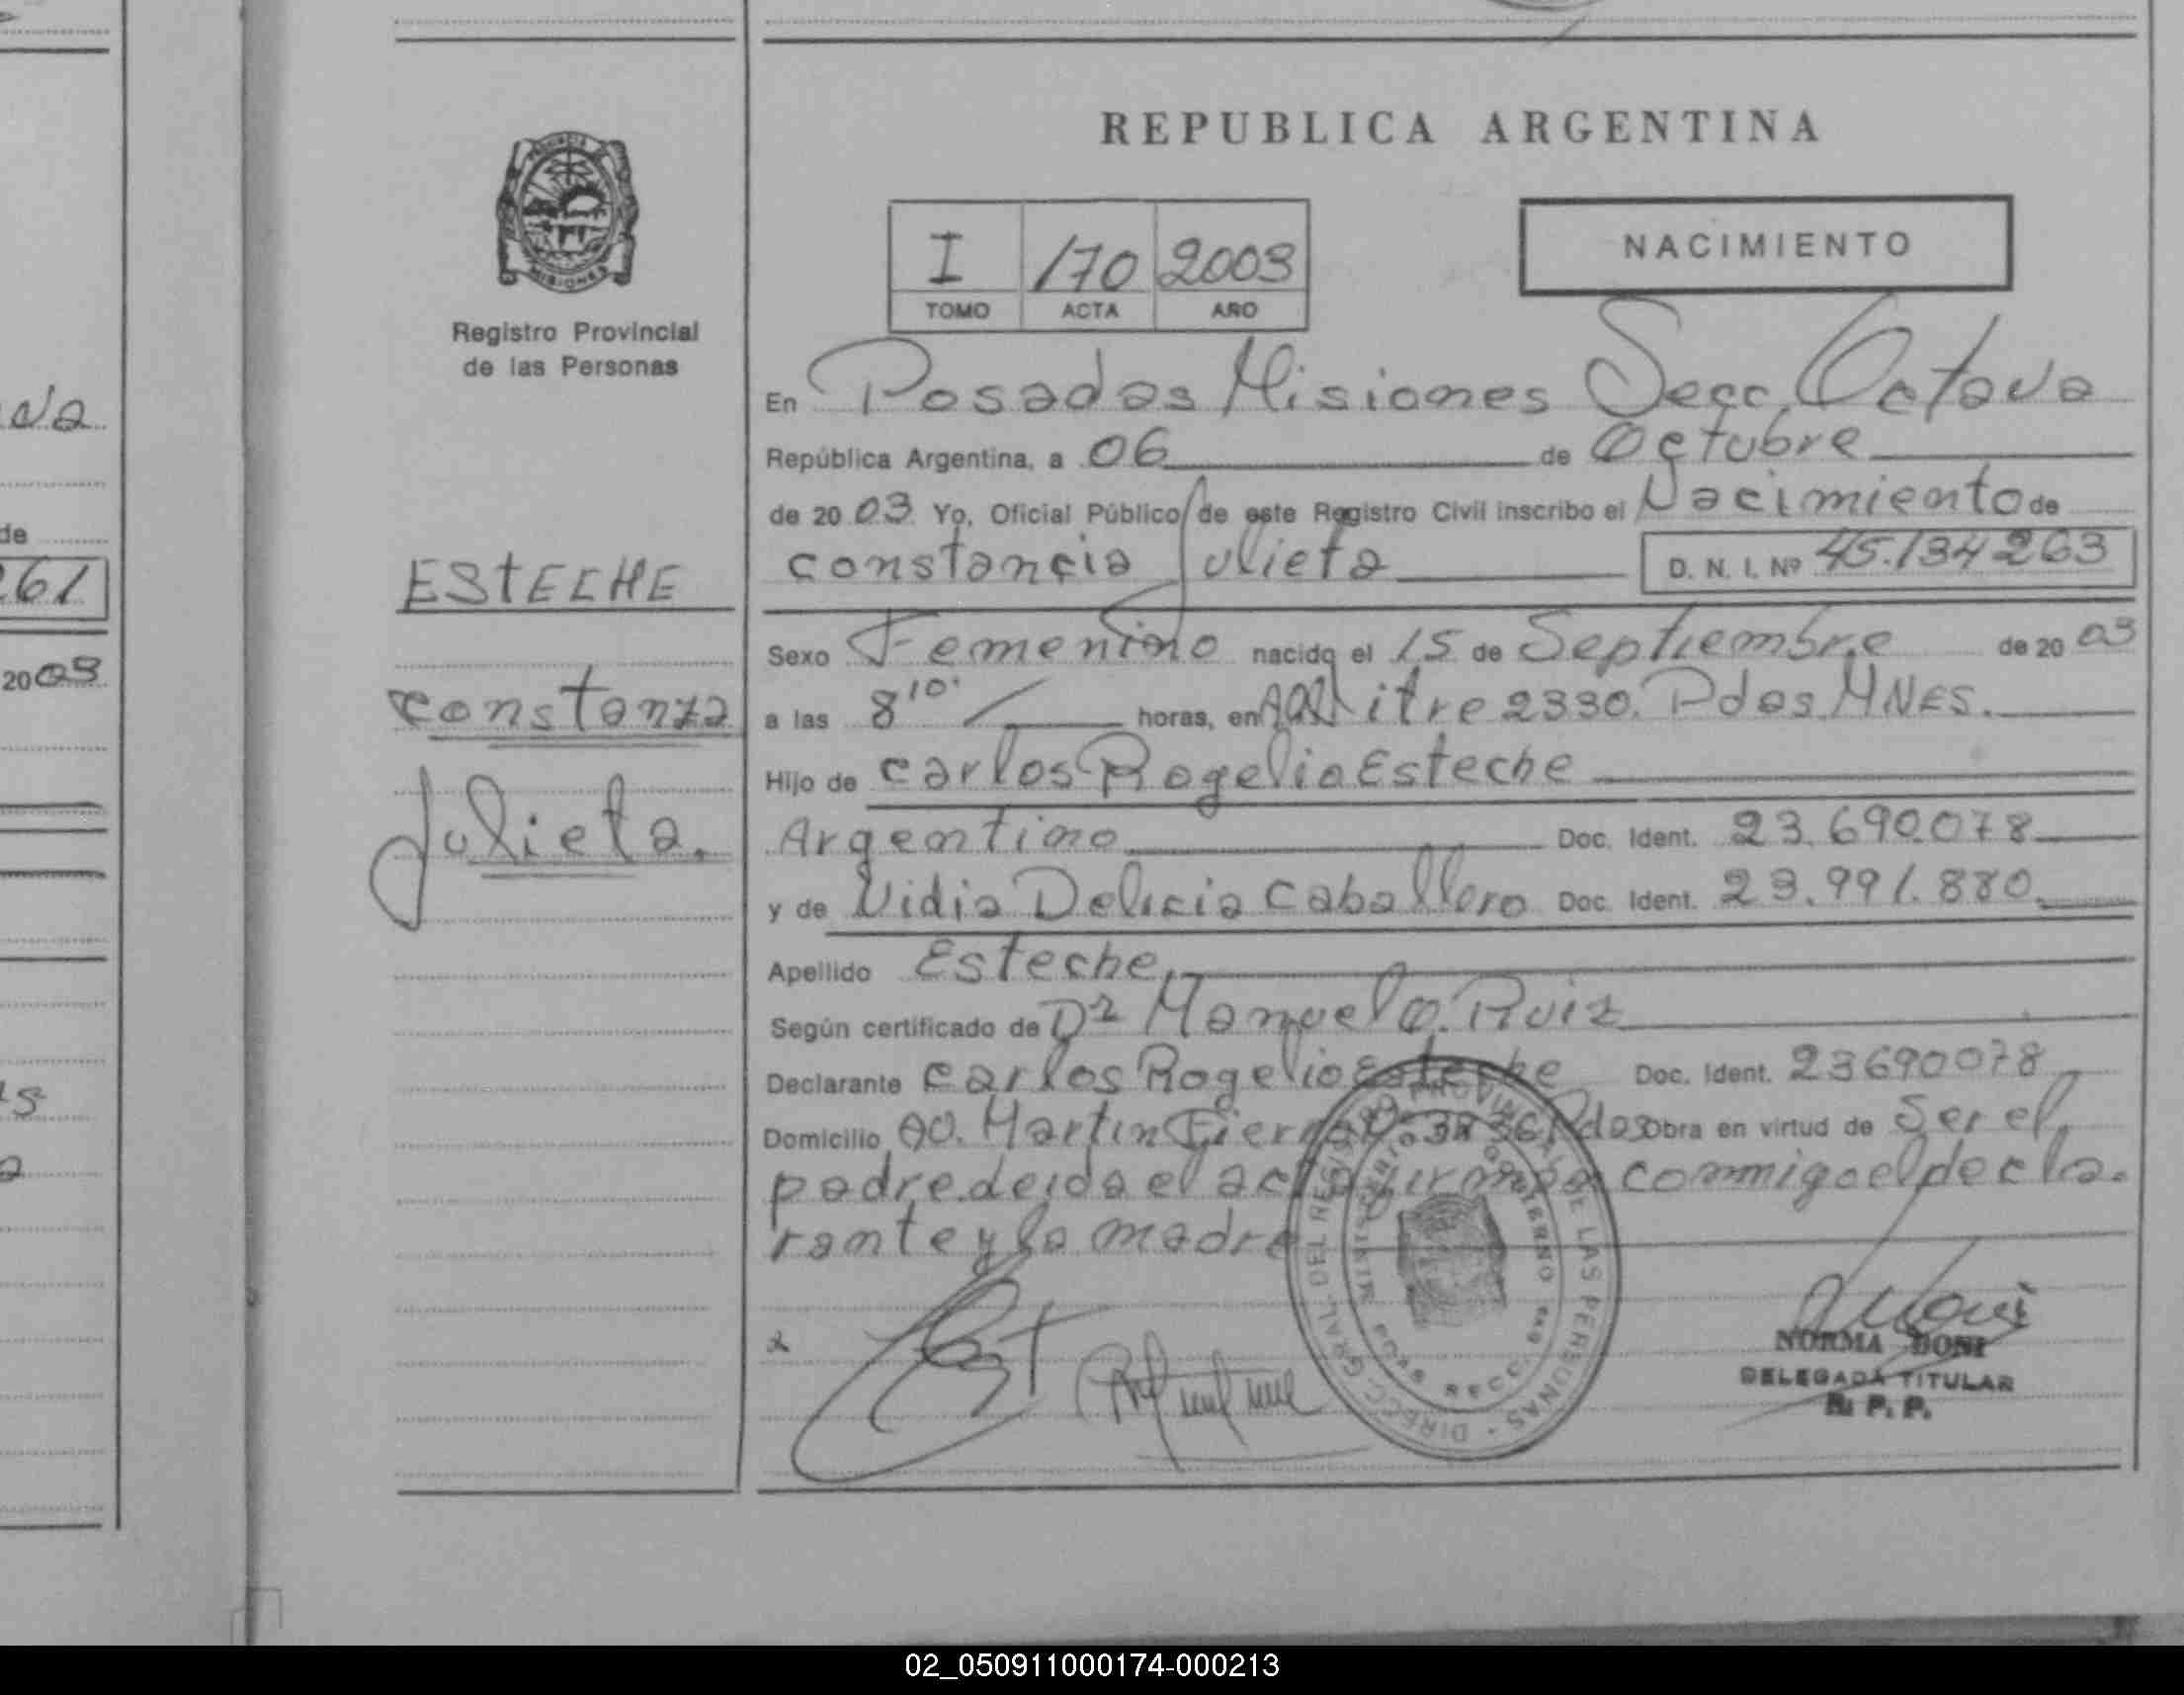 REPUBLICA ARGENTINA
PROVINCIA DE
MISIONES
Registro Provincial
de las Personas
I /70 2003
TOMO ACTA AÑO
NACIMIENTO
En Posadas Misiones Secc. Octava
República Argentina, a 06 de Octubre
de 20 03 Yo, Oficial Público de este Registro Civil inscribo el Nacimiento de
constancia Julieta D. N. I. Nº 45.134263
ESTECHE
constanza
Julieta.
Sexo Femenino nacido el 15 de Septiembre de 20 03
a las 8 10. horas, en Mitre 2330. Pdas MNES.
Hijo de carlos Rogelio Esteche
Argentino Doc. Ident. 23.690.078
y de Nidia Delicia Caballero Doc. Ident. 23.991.880.
Apellido Esteche,
Según certificado de Dr Manuel O. Ruiz
Declarante Carlos Rogelio Esteche Doc. Ident. 23690078
Domicilio Av. Martin Fierro Pdas Obra en virtud de Ser el
padre.leida el acta firman conmigo el decla.
rante y la madre
DIRECC. GRAL. DEL REGISTRO PROVINCIAL DE LAS PERSONAS
MINISTERIO GOBIERNO
NORMA BONI
DELEGADA TITULAR
R. P. P.
va
de
261
2003
02_050911000174-000213